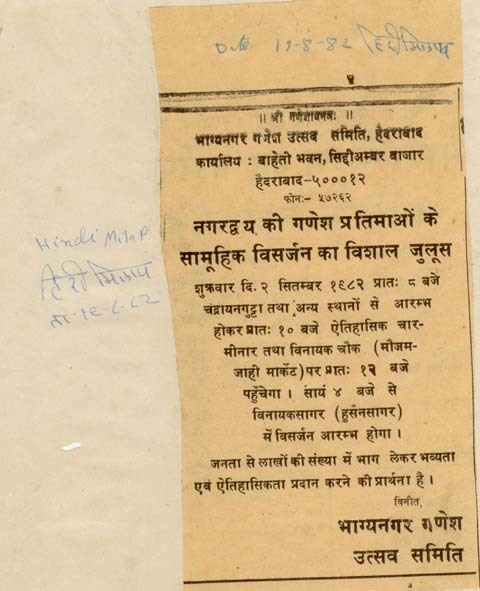 Date 19-8-82 हिंदी मिलाप
।। श्री गणेशायनमः ।।
भाग्यनगर गणेश उत्सव समिति, हैदराबाद
कार्यालय : बाहेती भवन, सिद्दीअम्बर बाजार
हैदराबाद-५०००१२
फोनः- ५७२६२
नगरद्वय की गणेश प्रतिमाओं के
सामूहिक विसर्जन का विशाल जुलूस
शुक्रवार दि. २ सितम्बर १९८२ प्रातः ८ बजे
चंद्रायनगुट्टा तथा अन्य स्थानों से आरम्भ
होकर प्रातः १० बजे ऐतिहासिक चार-
मीनार तथा विनायक चौक (मौजम-
जाही मार्केट) पर प्रातः १२ बजे
पहुँचेगा । सायं ४ बजे से
विनायकसागर (हुसैनसागर)
में विसर्जन आरम्भ होगा ।
जनता से लाखों की संख्या में भाग लेकर भव्यता
एवं ऐतिहासिकता प्रदान करने की प्रार्थना है ।
विनीत,
भाग्यनगर गणेश
उत्सव समिति
Hindi Milap
हिंदी मिलाप